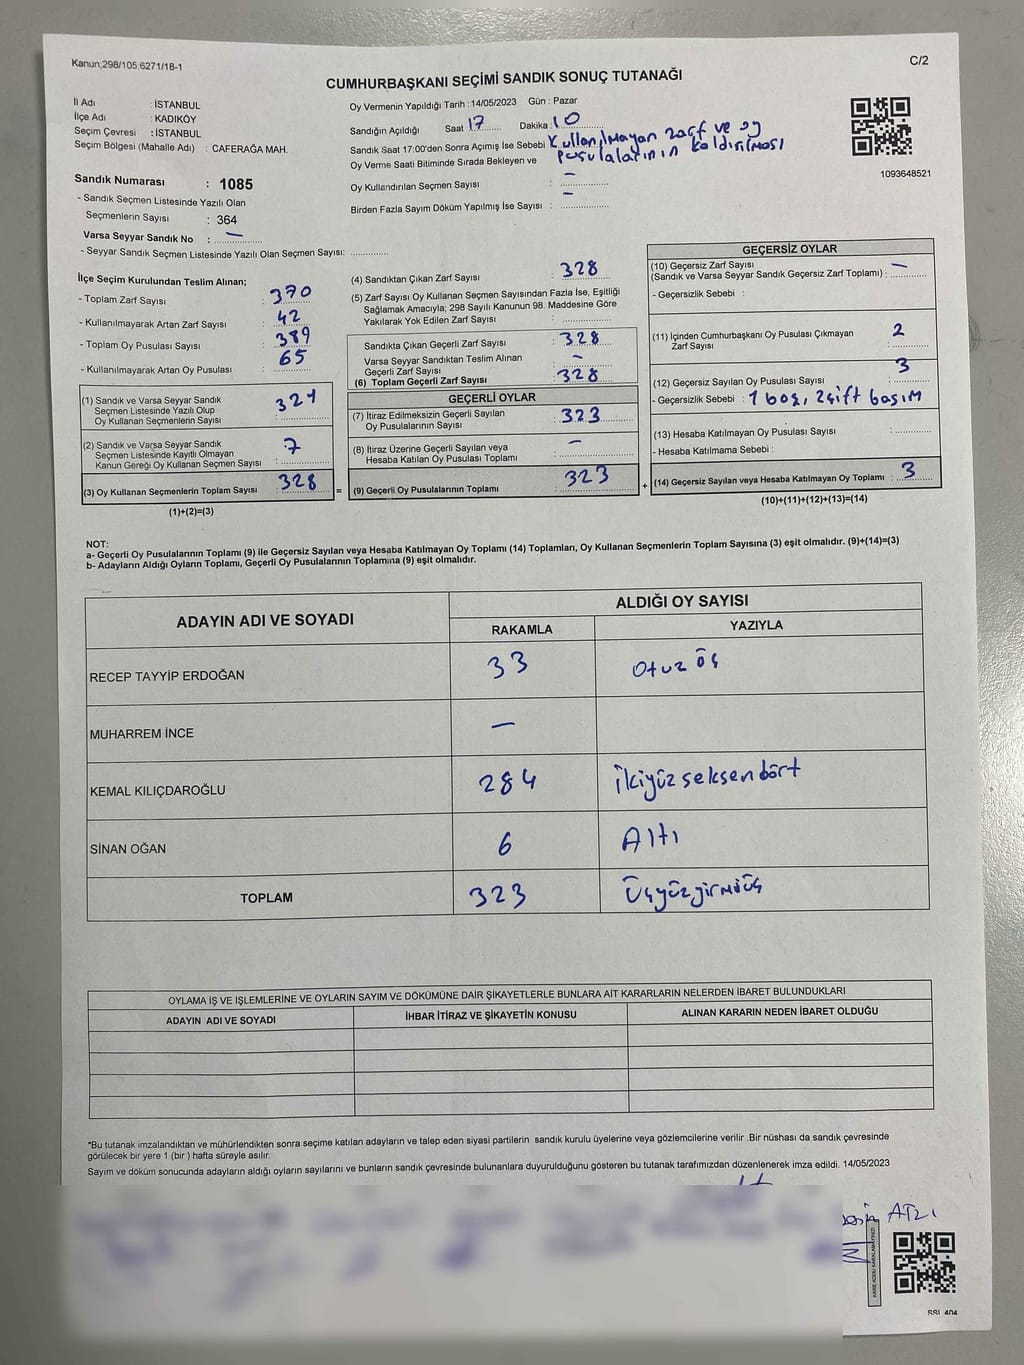 Kanun;298/105;6271/18-1
C/2
CUMHURBAŞKANI SEÇİMİ SANDIK SONUÇ TUTANAĞI
İl Adı : İSTANBUL
İlçe Adı : KADIKÖY
Seçim Çevresi : İSTANBUL
Seçim Bölgesi (Mahalle Adı) : CAFERAĞA MAH.
Sandık Numarası : 1085
- Sandık Seçmen Listesinde Yazılı Olan
Seçmenlerin Sayısı : 364
Varsa Seyyar Sandık No : —
- Seyyar Sandık Seçmen Listesinde Yazılı Olan Seçmen Sayısı: ..............
Oy Vermenin Yapıldığı Tarih : 14/05/2023 Gün : Pazar
Sandığın Açıldığı Saat 17 Dakika : 10
Sandık Saat 17:00'den Sonra Açımış İse Sebebi Kullanılmayan zarf ve oy
pusulalarının kaldırılması
Oy Verme Saati Bitiminde Sırada Bekleyen ve
Oy Kullandırılan Seçmen Sayısı : —
Birden Fazla Sayım Döküm Yapılmış İse Sayısı : —
1093648521
İlçe Seçim Kurulundan Teslim Alınan;
- Toplam Zarf Sayısı : 370
- Kullanılmayarak Artan Zarf Sayısı : 42
- Toplam Oy Pusulası Sayısı : 389
- Kullanılmayarak Artan Oy Pusulası : 65
(1) Sandık ve Varsa Seyyar Sandık
Seçmen Listesinde Yazılı Olup
Oy Kullanan Seçmenlerin Sayısı : 321
(2) Sandık ve Varsa Seyyar Sandık
Seçmen Listesinde Kayıtlı Olmayan
Kanun Gereği Oy Kullanan Seçmen Sayısı : 7
(3) Oy Kullanan Seçmenlerin Toplam Sayısı : 328
(1)+(2)=(3)
=
(4) Sandıktan Çıkan Zarf Sayısı : 328
(5) Zarf Sayısı Oy Kullanan Seçmen Sayısından Fazla İse, Eşitliği
Sağlamak Amacıyla; 298 Sayılı Kanunun 98. Maddesine Göre
Yakılarak Yok Edilen Zarf Sayısı :
Sandıkta Çıkan Geçerli Zarf Sayısı : 328
Varsa Seyyar Sandıktan Teslim Alınan
Geçerli Zarf Sayısı : —
(6) Toplam Geçerli Zarf Sayısı : 328
GEÇERLİ OYLAR
(7) İtiraz Edilmeksizin Geçerli Sayılan
Oy Pusulalarının Sayısı : 323
(8) İtiraz Üzerine Geçerli Sayılan veya
Hesaba Katılan Oy Pusulası Toplamı : —
(9) Geçerli Oy Pusulalarının Toplamı : 323
+
GEÇERSİZ OYLAR
(10) Geçersiz Zarf Sayısı
(Sandık ve Varsa Seyyar Sandık Geçersiz Zarf Toplamı) : —
- Geçersizlik Sebebi :
(11) İçinden Cumhurbaşkanı Oy Pusulası Çıkmayan
Zarf Sayısı : 2
(12) Geçersiz Sayılan Oy Pusulası Sayısı : 3
- Geçersizlik Sebebi : 1 boş, 2 çift basım
(13) Hesaba Katılmayan Oy Pusulası Sayısı :
- Hesaba Katılmama Sebebi :
(14) Geçersiz Sayılan veya Hesaba Katılmayan Oy Toplamı : 3
(10)+(11)+(12)+(13)=(14)
NOT:
a- Geçerli Oy Pusulalarının Toplamı (9) ile Geçersiz Sayılan veya Hesaba Katılmayan Oy Toplamı (14) Toplamları, Oy Kullanan Seçmenlerin Toplam Sayısına (3) eşit olmalıdır. (9)+(14)=(3)
b- Adayların Aldığı Oyların Toplamı, Geçerli Oy Pusulalarının Toplamına (9) eşit olmalıdır.
ADAYIN ADI VE SOYADI
ALDIĞI OY SAYISI
RAKAMLA YAZIYLA
RECEP TAYYİP ERDOĞAN 33 Otuz üç
MUHARREM İNCE —
KEMAL KILIÇDAROĞLU 284 İkiyüzseksendört
SİNAN OĞAN 6 Altı
TOPLAM 323 Üçyüzyirmiüç
OYLAMA İŞ VE İŞLEMLERİNE VE OYLARIN SAYIM VE DÖKÜMÜNE DAİR ŞİKAYETLERLE BUNLARA AİT KARARLARIN NELERDEN İBARET BULUNDUKLARI
ADAYIN ADI VE SOYADI İHBAR İTİRAZ VE ŞİKAYETİN KONUSU ALINAN KARARIN NEDEN İBARET OLDUĞU
*Bu tutanak imzalandıktan ve mühürlendikten sonra seçime katılan adayların ve talep eden siyasi partilerin sandık kurulu üyelerine veya gözlemcilerine verilir .Bir nüshası da sandık çevresinde
görülecek bir yere 1 (bir ) hafta süreyle asılır.
Sayım ve döküm sonucunda adayların aldığı oyların sayılarını ve bunların sandık çevresinde bulunanlara duyurulduğunu gösteren bu tutanak tarafımızdan düzenlenerek imza edildi. 14/05/2023